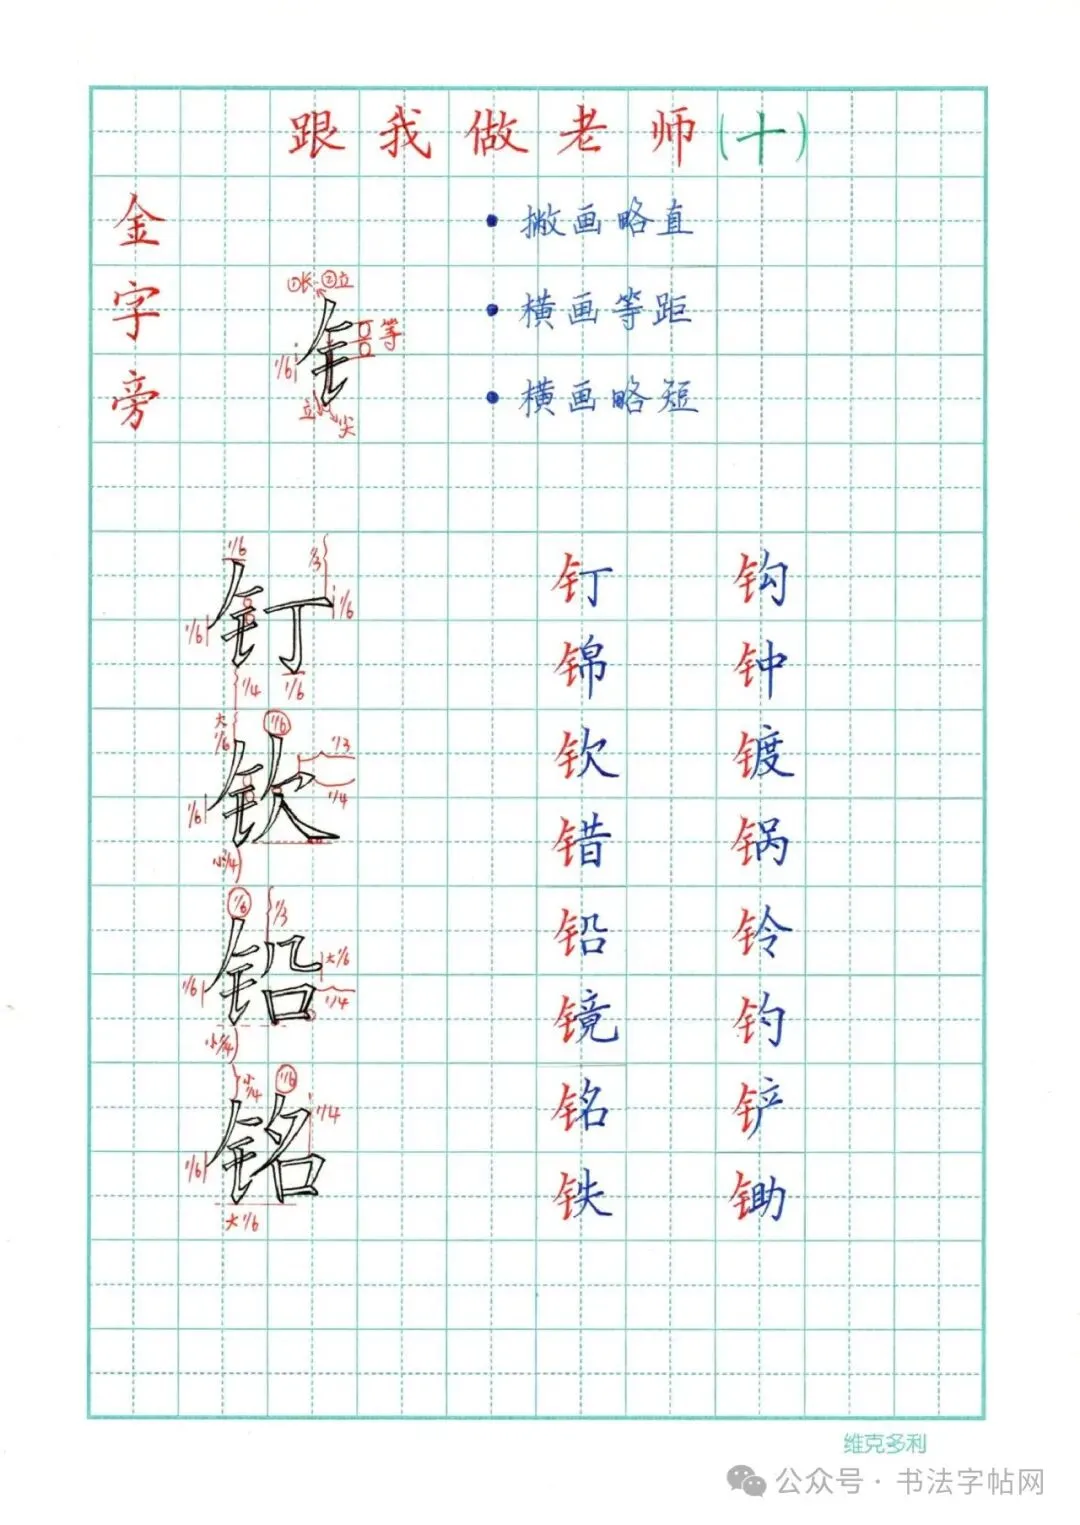 跟我做老师(十)
金字旁
• 撇画略直
• 横画等距
• 横画略短
①长 ②立
等
1/6
立 尖
1/6 1/3
钉
1/6 1/6
1/4 1/6
大1/6 1/6 1/3
钦
1/6 1/4
小1/4
1/6 1/3
铅
1/6 大1/6
1/4
小1/4
小1/4 1/6 1/4
铭
1/6
大1/6
钉 钩
锦 钟
钦 镀
错 锅
铅 铃
镜 钓
铭 铲
铁 锄
维克多利
公众号·书法字帖网